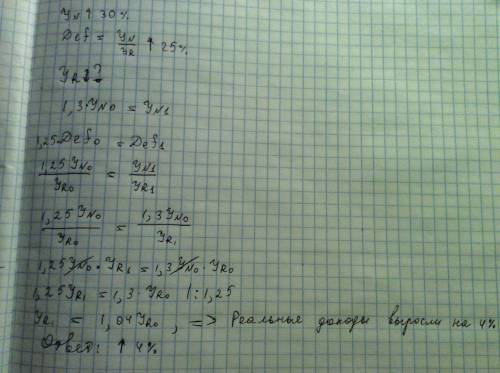 Yн ↑ 30%
Def = Yн/YR ↑ 25%
YR1?
1,3·YN0 = YN1
1,25Def0 = Def1
1,25YN0/YR0 = YN1/YR1
1,25YN0/YR0 = 1,3YN0/YR1
1,25YN0·YR1 = 1,3YN0·YR0
1,25YR1 = 1,3·YR0 |:1,25
YR1 = 1,04YR0, => Реальные доходы выросли на 4%
Ответ: ↑ 4%